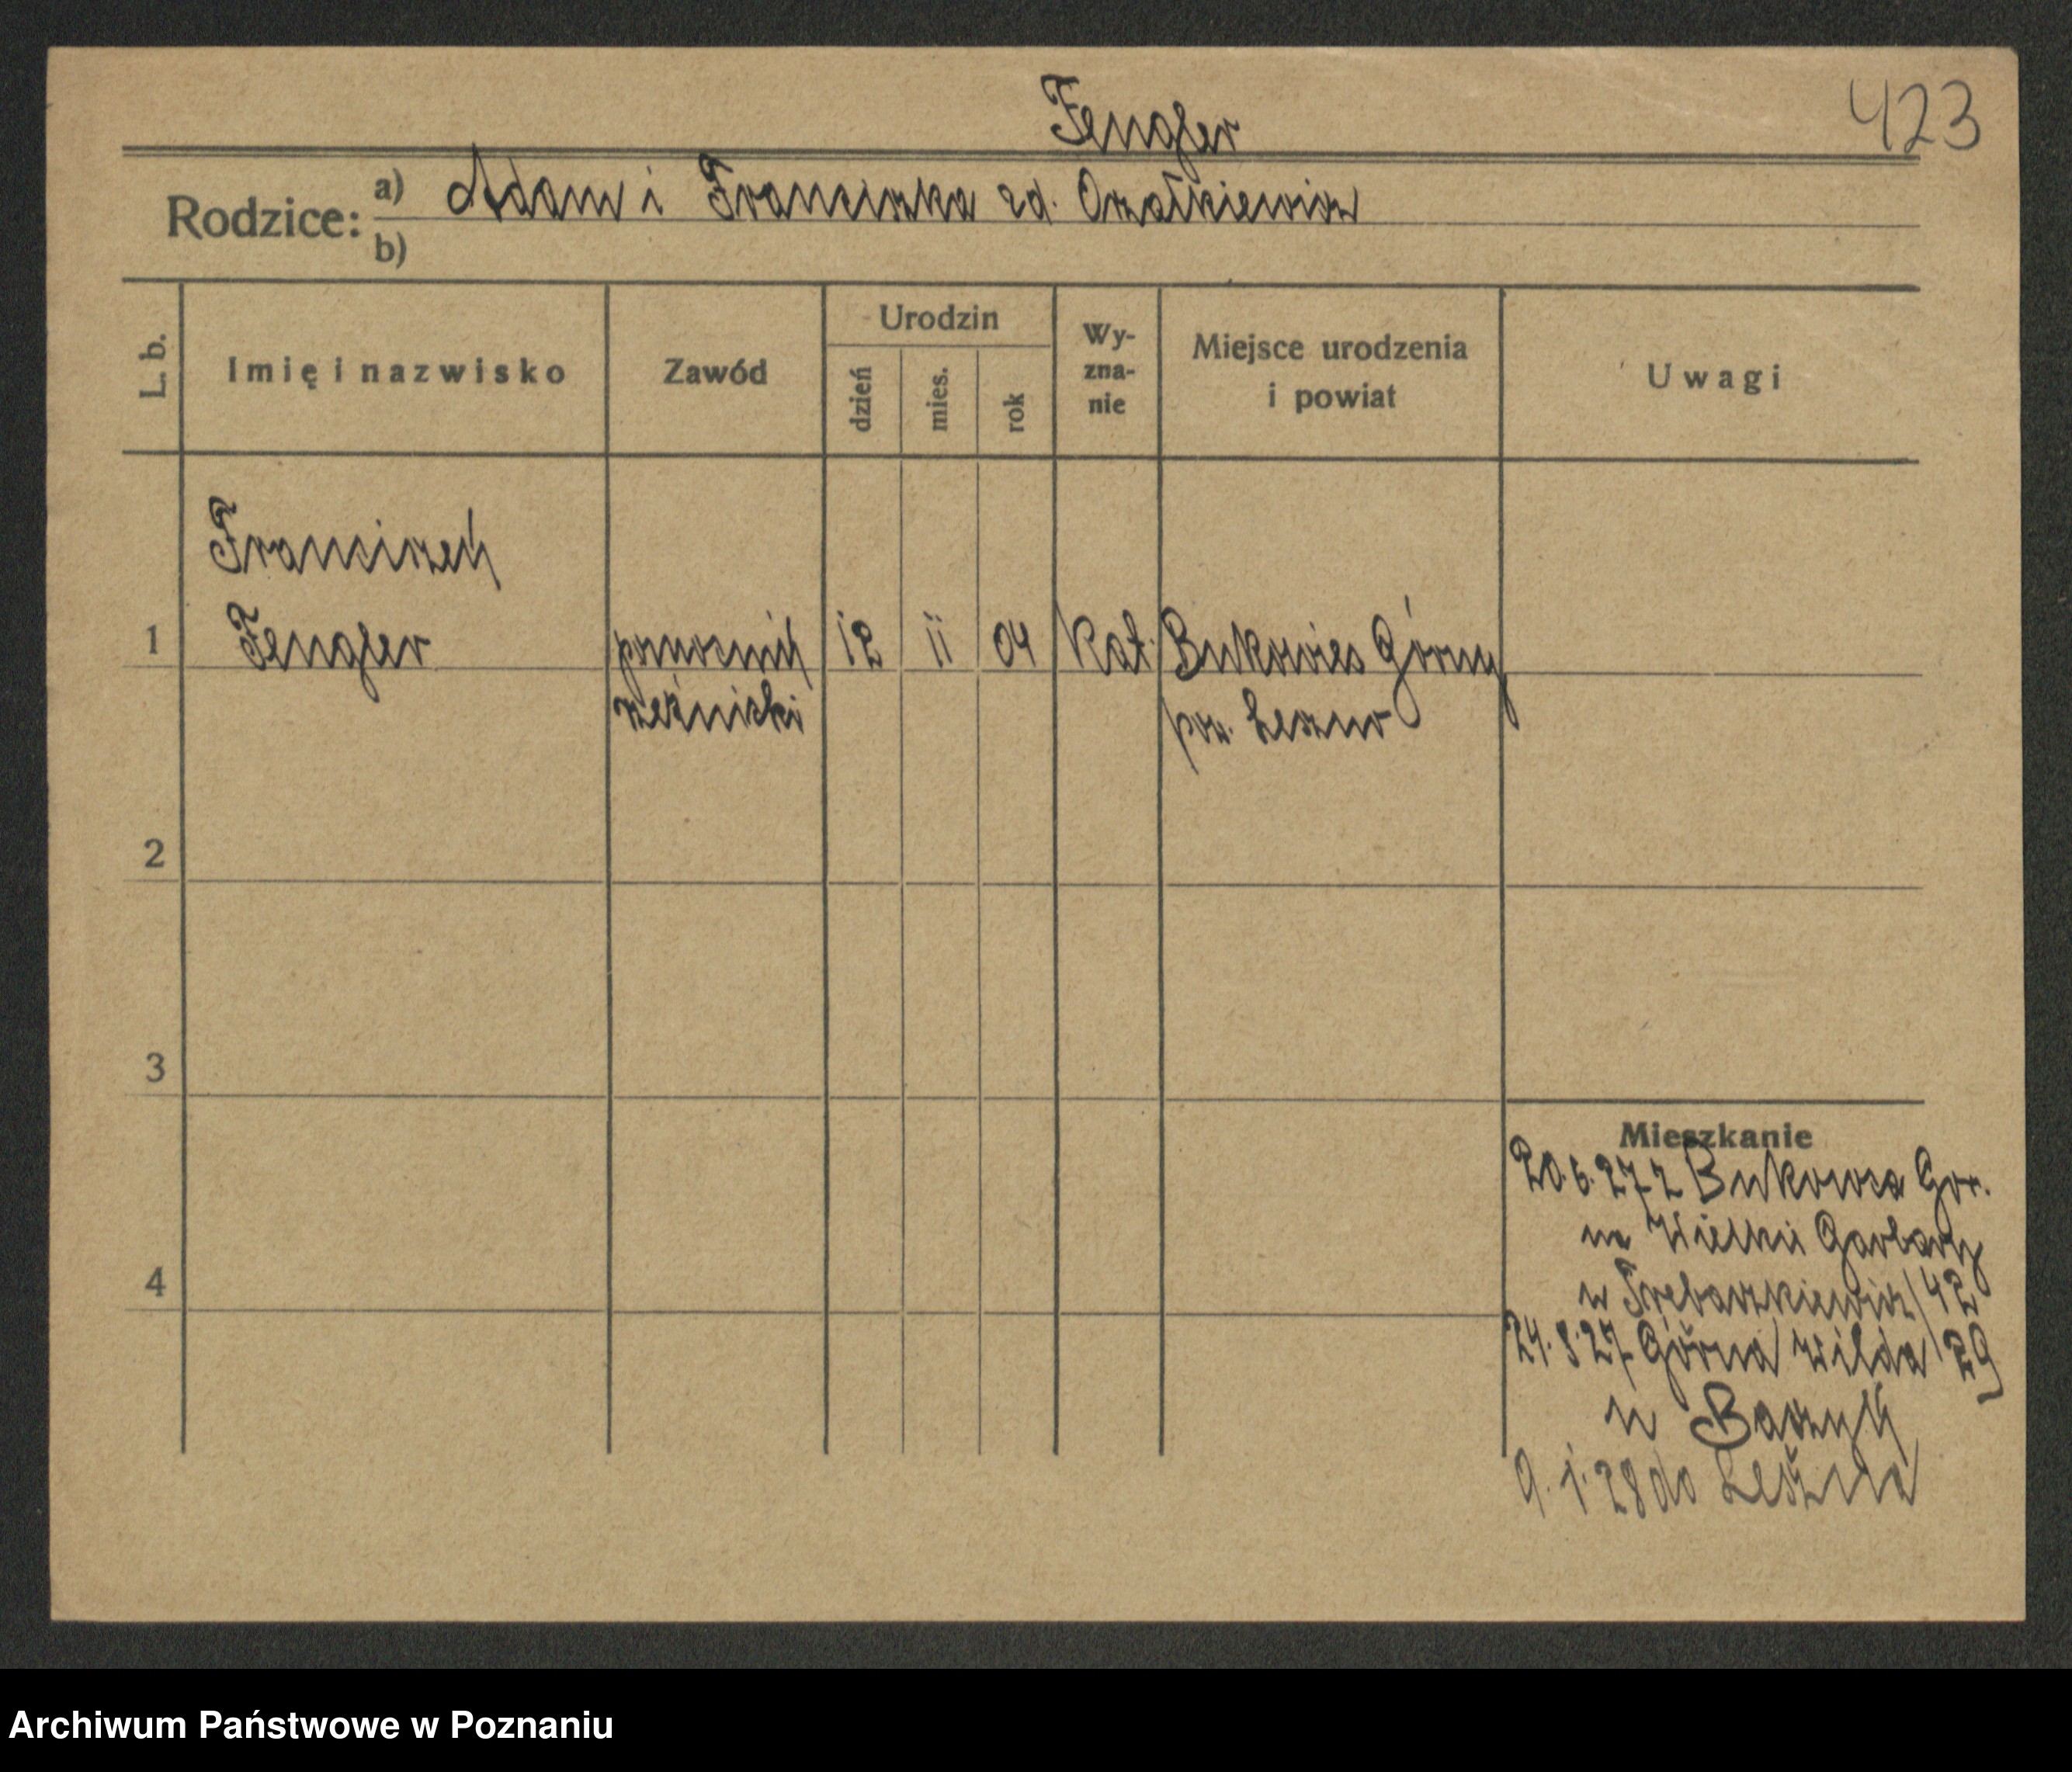 Fengler
423
Rodzice: a) Adam i Franciszka zd. Orzałkiewicz
b)
L. b.
Imię i nazwisko
Zawód
Urodzin
dzień
mies.
rok
Wy-
zna-
nie
Miejsce urodzenia
i powiat
Uwagi
Franciszek
1 Fengler pomocnik 12 11 04 Kat. Bukowiec Górny
rzeźnicki pow. Leszno
2
3
Mieszkanie
20.6.27 z Bukowca Gór.
na Wielkie Garbary
4
u 42
24.8.27 Górna Wilda 29
u
9.1.28 do Leszna
Archiwum Państwowe w Poznaniu